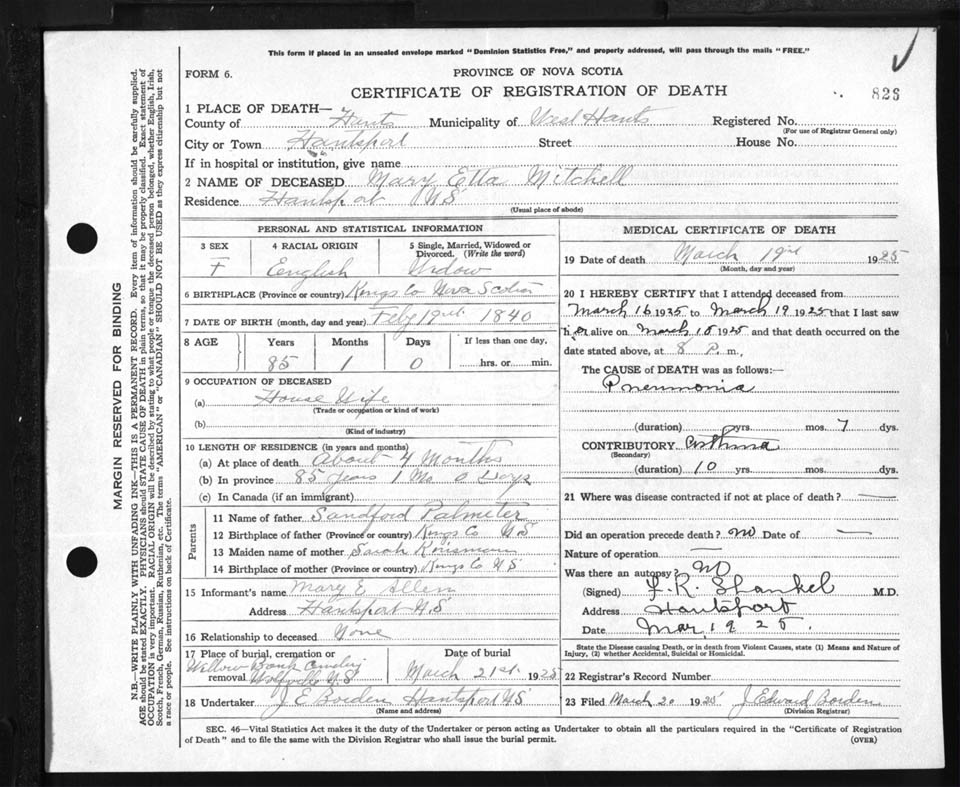 This form if placed in an unsealed envelope marked "Dominion Statistics Free," and properly addressed, will pass through the mails "FREE."
FORM 6.
PROVINCE OF NOVA SCOTIA
CERTIFICATE OF REGISTRATION OF DEATH
826
1 PLACE OF DEATH—
County of Hants Municipality of West Hants Registered No.
(For use of Registrar General only)
City or Town Hantsport Street House No.
If in hospital or institution, give name
2 NAME OF DECEASED Mary Etta Mitchell
Residence Hantsport NS
(Usual place of abode)
PERSONAL AND STATISTICAL INFORMATION
3 SEX 4 RACIAL ORIGIN 5 Single, Married, Widowed or Divorced. (Write the word)
F English Widow
6 BIRTHPLACE (Province or country) Kings Co Nova Scotia
7 DATE OF BIRTH (month, day and year) Feby 19th 1840
8 AGE Years Months Days If less than one day,
85 1 0 hrs. or min.
9 OCCUPATION OF DECEASED
(a) House Wife
(Trade or occupation or kind of work)
(b)
(Kind of industry)
10 LENGTH OF RESIDENCE (in years and months)
(a) At place of death About 4 Months
(b) In province 85 years 1 Mo 0 Days
(c) In Canada (if an immigrant)
Parents
11 Name of father Sandford Palmeter
12 Birthplace of father (Province or country) Kings Co NS
13 Maiden name of mother Sarah
14 Birthplace of mother (Province or country) Kings Co NS
15 Informant's name Mary E Allen
Address Hantsport N.S
16 Relationship to deceased None
17 Place of burial, cremation or removal Willow Bank Cemetery Wolfville N.S
Date of burial
March 21st 1925
18 Undertaker J E Borden Hantsport NS
(Name and address)
MEDICAL CERTIFICATE OF DEATH
19 Date of death March 19 1925
(Month, day and year)
20 I HEREBY CERTIFY that I attended deceased from
March 16 1925 to March 19 1925 that I last saw
her alive on March 18 1925 and that death occurred on the
date stated above, at 8 P. m.
The CAUSE of DEATH was as follows:—
Pneumonia
(duration) yrs. mos. 7 dys.
CONTRIBUTORY Asthma
(Secondary)
(duration) 10 yrs. mos. dys.
21 Where was disease contracted if not at place of death? —
Did an operation precede death? no Date of —
Nature of operation —
Was there an autopsy? No
(Signed) R. Shankel M.D.
Address Hantsport
Date Mar, 19 25.
State the Disease causing Death, or in death from Violent Causes, state (1) Means and Nature of Injury, (2) whether Accidental, Suicidal or Homicidal.
22 Registrar's Record Number
23 Filed March 20 1925 J Edward Borden
(Division Registrar)
SEC. 46—Vital Statistics Act makes it the duty of the Undertaker or person acting as Undertaker to obtain all the particulars required in the "Certificate of Registration
of Death" and to file the same with the Division Registrar who shall issue the burial permit. (OVER)
MARGIN RESERVED FOR BINDING
N.B.—WRITE PLAINLY WITH UNFADING INK—THIS IS A PERMANENT RECORD. Every item of information should be carefully supplied.
AGE should be stated EXACTLY. PHYSICIANS should STATE CAUSE OF DEATH in plain terms, so that it may be properly classified. Exact statement of
OCCUPATION is very important. RACIAL ORIGIN will be described by stating to what people or tongue the deceased person belonged, whether English, Irish,
Scotch, French, German, Russian, Ruthenian, etc. The terms "AMERICAN" or "CANADIAN" SHOULD NOT BE USED as they express citizenship but not
a race or people. See instructions on back of Certificate.